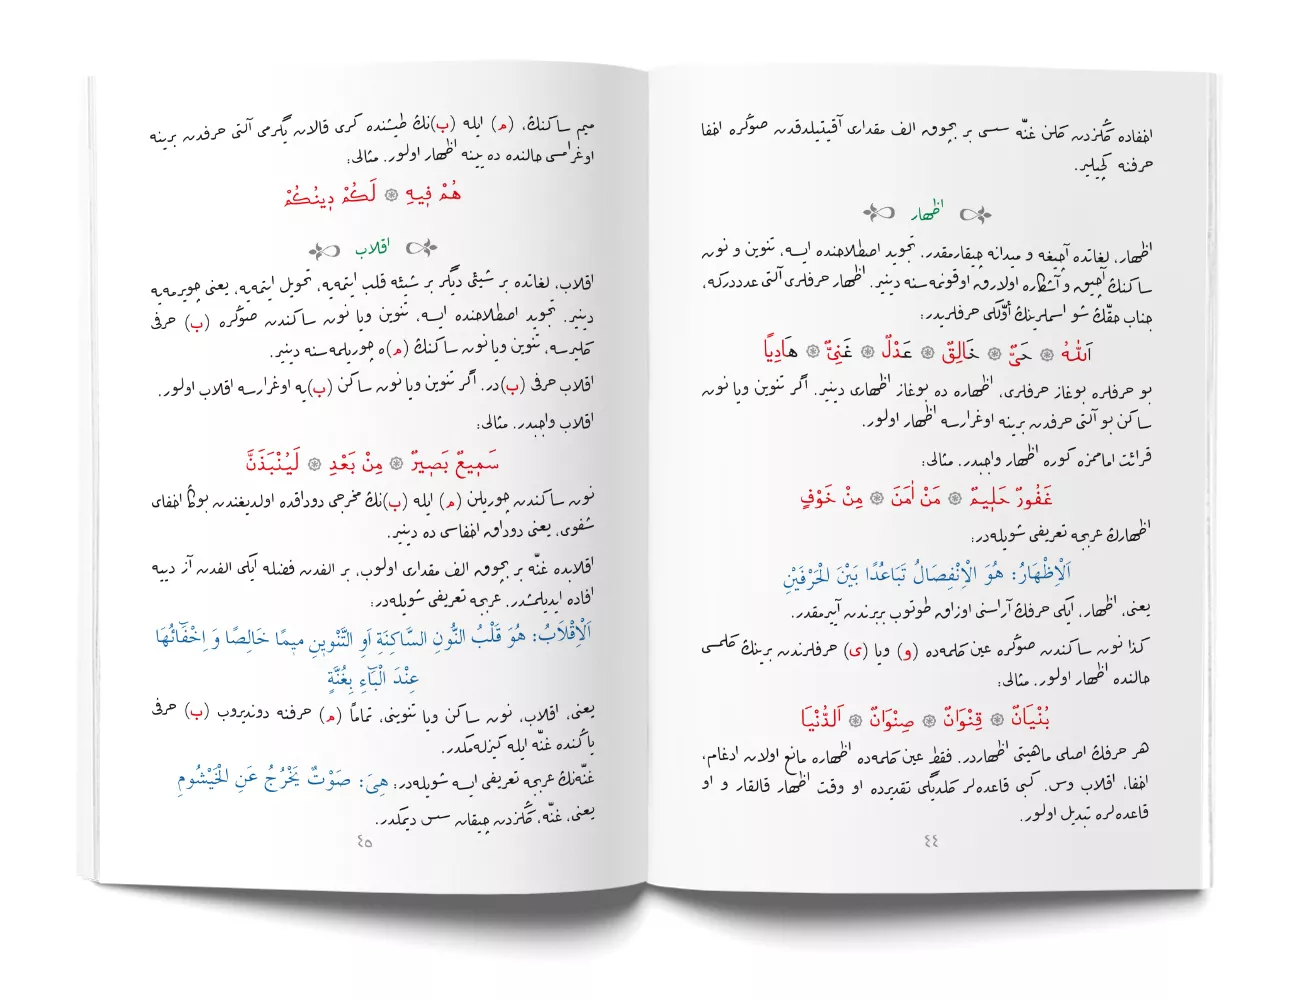 اخفاده گڭزدن گلن غنّه سسی بر بچوق الف مقداری آقیتیلدقدن صوڭره اخفا
حرفنه گچیلیر.
اظهار
اظهار، لغاتده آچیغه و میدانه چیقارمقدر. تجوید اصطلاحنده ایسه، تنوین و نون
ساکنڭ آچیق و آشكاره اولارق اوقونمه‌سنه دینیر. اظهار حرفلری آلتی عدددركه،
جناب حقّڭ شو اسملرینڭ أوّلكی حرفلریدر:
اَللّٰهُ ۞ حَیٌّ ۞ خَالِقٌ ۞ عَدْلٌ ۞ غَنِیٌّ ۞ هَادِیًا
بو حرفلره بوغاز حرفلری، اظهاره ده بوغاز اظهاری دینیر. اگر تنوین ویا نون
ساكن بو آلتی حرفدن برینه اوغرارسه اظهار اولور.
قرائت اماممزه كوره اظهار واجبدر. مثالی:
غَفُورٌ حَلِیمٌ ۞ مَنْ اٰمَنَ ۞ مِنْ خَوْفٍ
اظهارڭ عربجه تعریفی شویله‌در:
اَلْاِظْهَارُ: هُوَ الْاِنْفِصَالُ تَبَاعُدًا بَیْنَ الْحَرْفَیْنِ
یعنی، اظهار، ایكی حرفڭ آراسنی اوزاق طوتوب بربرندن آییرمقدر.
كذا نون ساكندن صوڭره عین كلمه‌ده (و) ویا (ی) حرفلرندن برینڭ گلمسی
حالنده اظهار اولور. مثالی:
بُنْیَانٌ ۞ قِنْوَانٌ ۞ صِنْوَانٌ ۞ اَلدُّنْیَا
هر حرفڭ اصلی ماهیتی اظهاردر. فقط عین كلمه‌ده اظهاره مانع اولان ادغام،
اخفا، اقلاب وس. كبی قاعده‌لر گلدیگی تقدیرده او وقت اظهار قالقار و او
قاعده‌لره تبدیل اولور.
٤٤
میم ساكنڭ، (م) ایله (ب)نڭ طیشنده گری قالان یگرمی آلتی حرفدن برینه
اوغرامسی حالنده ده یینه اظهار اولور. مثالی:
هُمْ فٖیهِ ۞ لَكُمْ دٖینُكُمْ
اقلاب
اقلاب، لغاتده بر شیئی دیگر بر شیئه قلب ایتمه‌یه، تحویل ایتمه‌یه، یعنی چویرمه‌یه
دینیر. تجوید اصطلاحنده ایسه، تنوین ویا نون ساكندن صوڭره (ب) حرفی
گلیرسه، تنوین ویا نون ساكنڭ (م)ه چوریلمه‌سنه دینیر.
اقلاب حرفی (ب)در. اگر تنوین ویا نون ساكن (ب)یه اوغرارسه اقلاب اولور.
اقلاب واجبدر. مثالی:
سَمٖیعٌ بَصٖیرٌ ۞ مِنْ بَعْدِ ۞ لَیُنْبَذَنَّ
نون ساكندن چوریلن (م) ایله (ب)نڭ مخرجی دوداقده اولدیغندن بوڭا اخفای
شفوی، یعنی دوداق اخفاسی ده دینیر.
اقلابده غنّه بر بچوق الف مقداری اولوب، بر الفدن فضله ایكی الفدن آز دییه
افاده ایدیلمشدر. عربجه تعریفی شویله‌در:
اَلْاِقْلَابُ: هُوَ قَلْبُ النُّونِ السَّاكِنَةِ اَوِ التَّنْوٖینِ مٖیمًا خَالِصًا وَ اِخْفَٓائُهَا
عِنْدَ الْبَٓاءِ بِغُنَّةٍ
یعنی، اقلاب، نون ساكن ویا تنوینی، تمامًا (م) حرفنه دوندیروب (ب) حرفی
یاكنده غنّه ایله گیزله‌مكدر.
غنّه‌نڭ عربجه تعریفی ایسه شویله‌در: هِیَ: صَوْتٌ یَخْرُجُ عَنِ الْخَیْشُومِ
یعنی، غنّه، گڭزدن چیقان سس دیمكدر.
٤٥